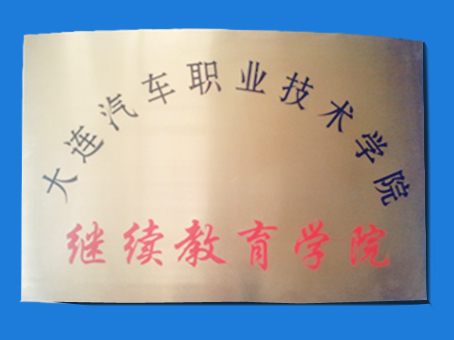 大连汽车职业技术学院
继续教育学院